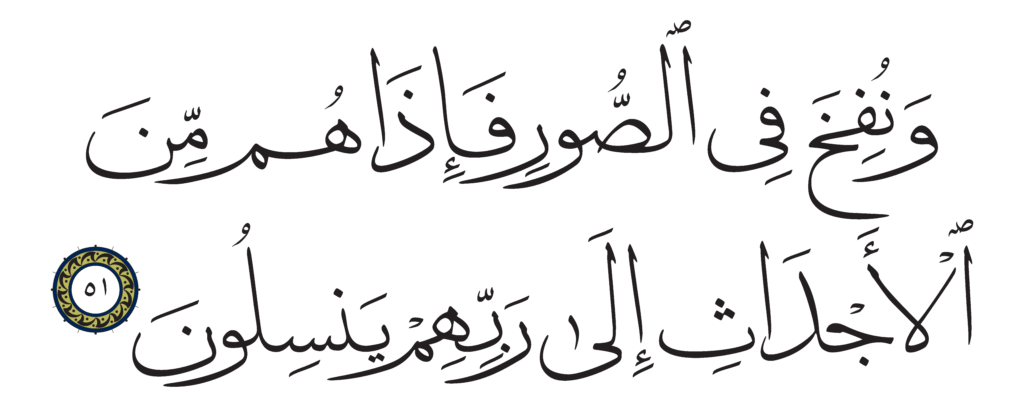 وَنُفِخَ فِى ٱلصُّورِ فَإِذَا هُم مِّنَ
ٱلْأَجْدَاثِ إِلَىٰ رَبِّهِمْ يَنسِلُونَ ٥١